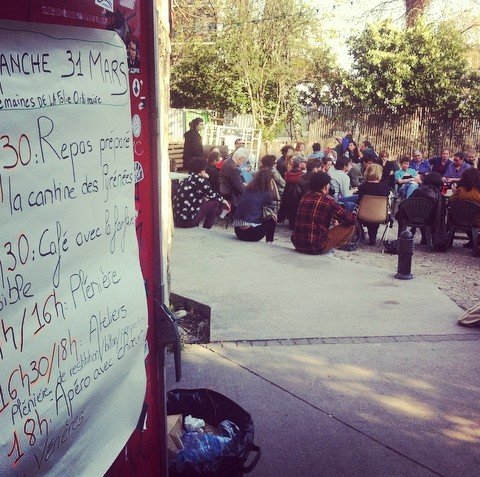 ANCHE 31 MARS
emaines DE LA FOLIE ORDINAIRE
30: Repas préparé
la cantine des Pyrénées
30: Café avec la
sible
h/16h: Plénière
16h30/18h: Ateliers
Plénière de restitution/bilan
18h: Apéro avec
Vénères